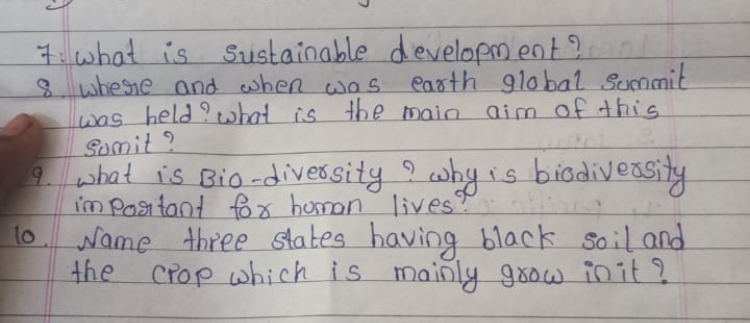 7. what is sustainable development?
8. where and when was earth global summit
was held? what is the main aim of this
sumit?
9. what is Bio-diversity ? why is biodiversity
important for human lives?
10. Name three states having black soil and
the crop which is mainly grow in it?